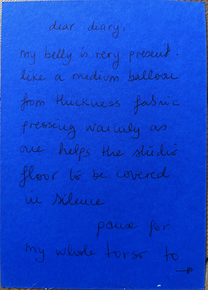 dear diary,
my belly is very present.
like a medium balloon
from thickness fabric
pressing warmly as
one helps the studio
floor to be covered
in silence
pause for
my whole torso to
→